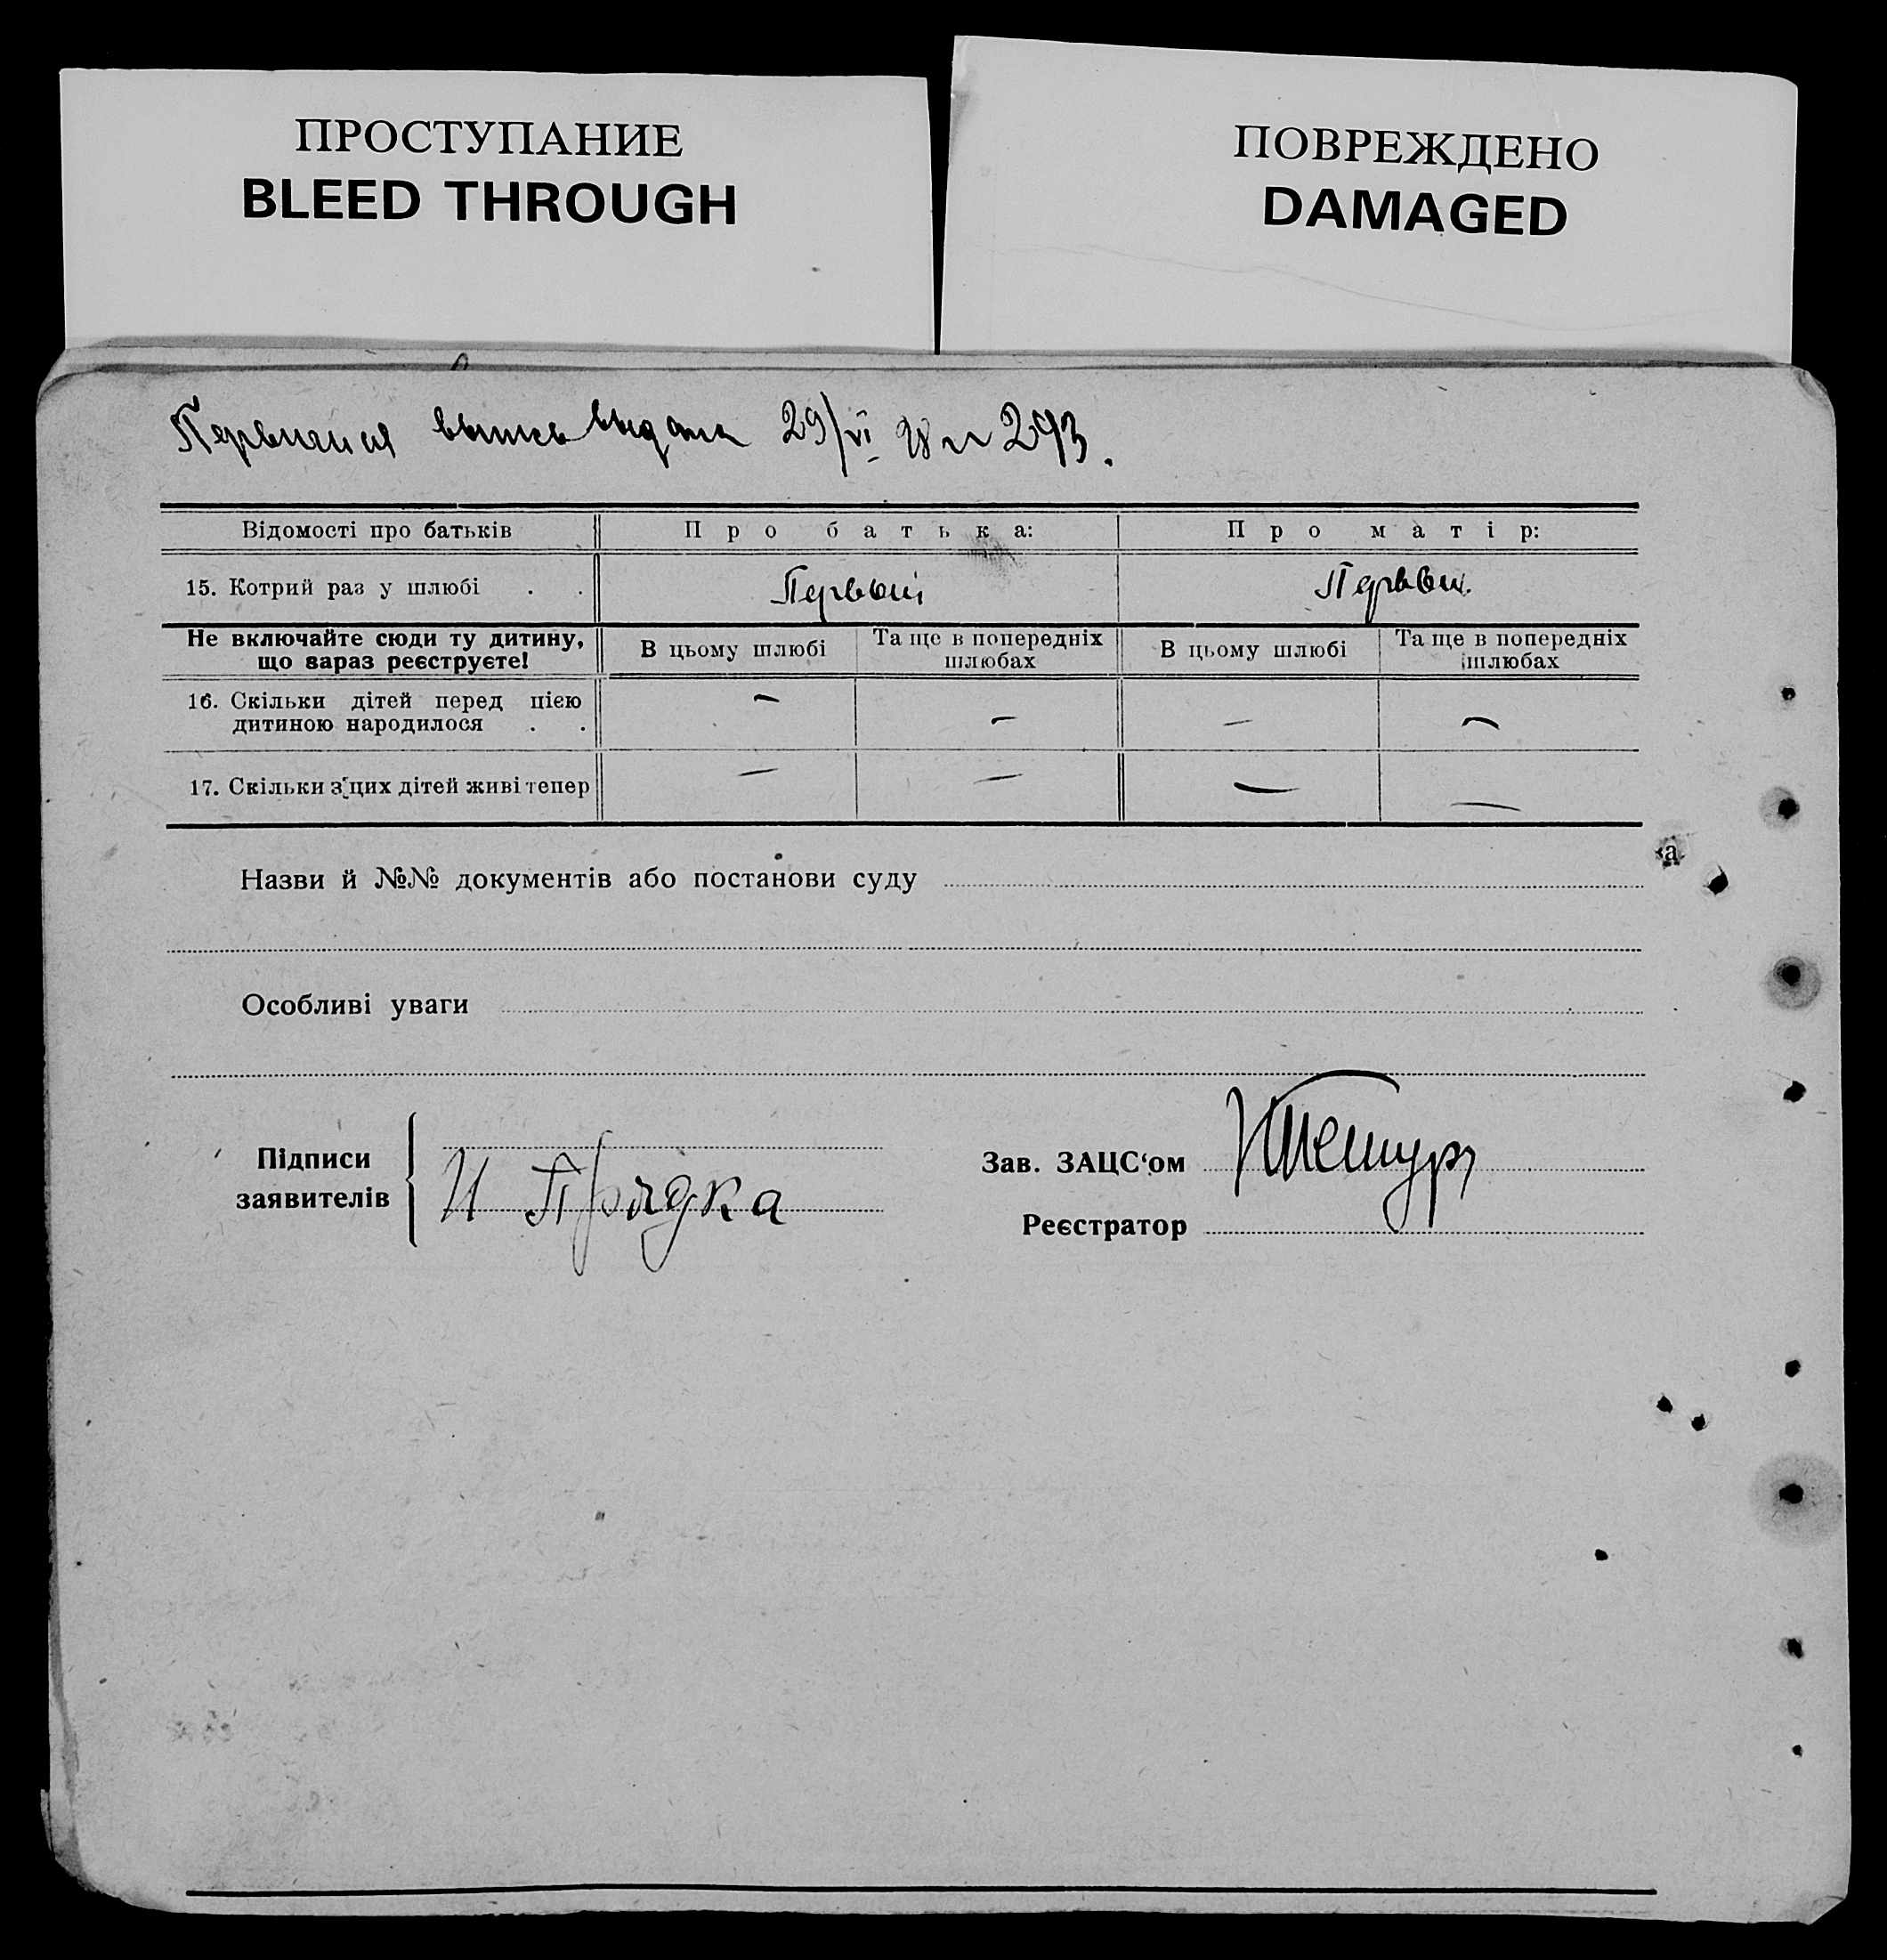 ПРОСТУПАНИЕ
BLEED THROUGH
ПОВРЕЖДЕНО
DAMAGED
Первичная выпись выдана 29/VI 293.
Відомості про батьків Про батька: Про матір:
15. Котрий раз у шлюбі . . Первый Первый.
Не включайте сюди ту дитину, що вараз реєструєте! В цьому шлюбі Та ще в попередніх шлюбах В цьому шлюбі Та ще в попередніх шлюбах
16. Скільки дітей перед цією дитиною народилося . . — — — —
17. Скільки з цих дітей живі тепер — — — —
Назви й №№ документів або постанови суду
Особливі уваги
Підписи заявителів И Прядка
Зав. ЗАЦС‘ом
Реєстратор